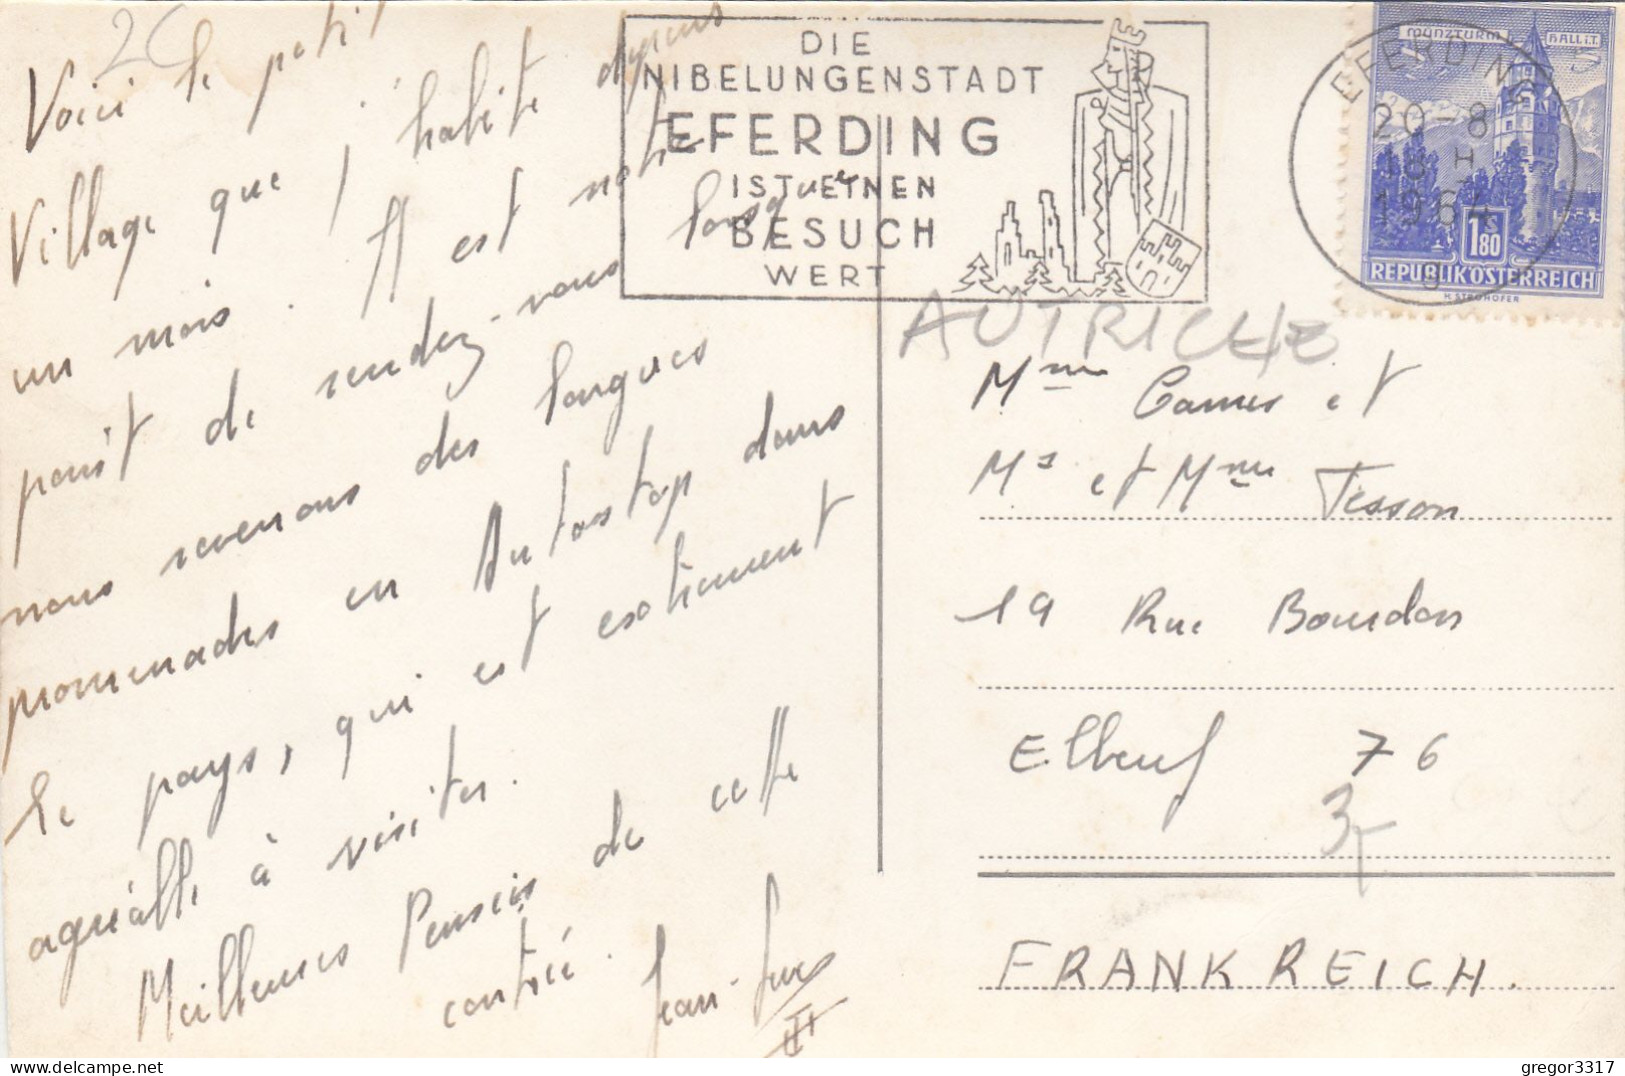 2C
Voici le petit
Village que j'habite depuis
un mois. Il est notre
point de rendez-vous lorsque
nous revenons des longues
promenades en Autostop dans
le pays, qui est
agréable à visiter.
Meilleures Pensées de cette
contrée. Jean-
DIE
NIBELUNGENSTADT
EFERDING
IST EINEN
BESUCH
WERT
EFERDING
20-8
18 H
1964
MÜNZTURM HALL i.T.
1.80
S
REPUBLIK ÖSTERREICH
H. STROHOFER
AUTRICHE
Mme et
Mr et Mme Tesson
19 Rue Bourdon
Elbeuf 76
FRANKREICH.
gregor3317